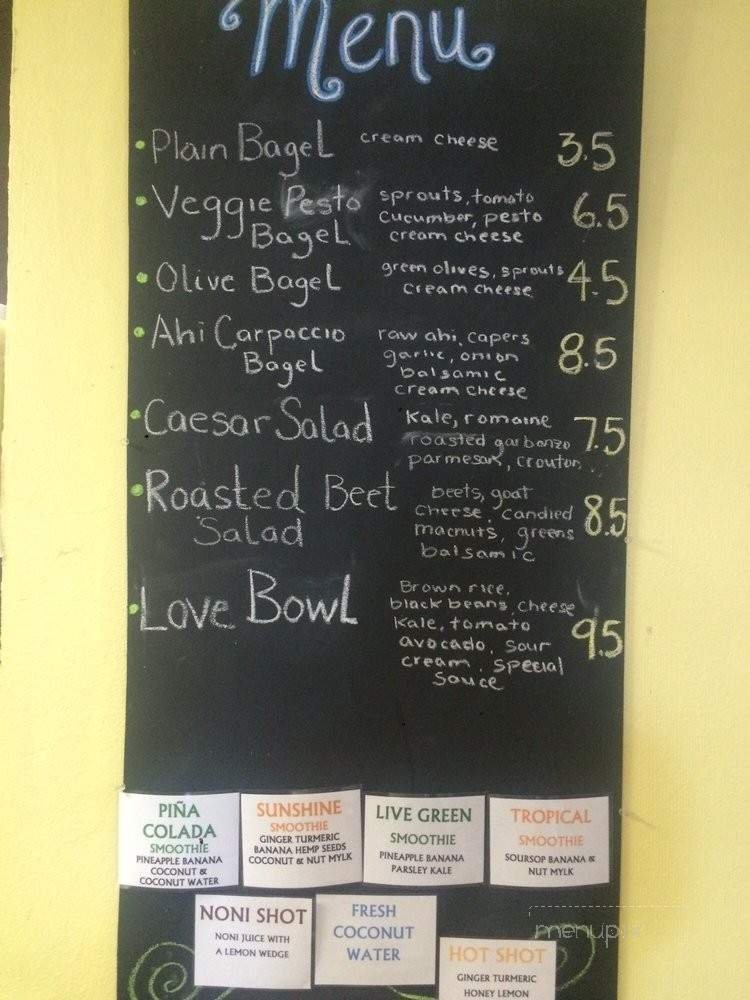 Menu
Plain Bagel cream cheese 3.5
Veggie Pesto sprouts, tomato
Bagel cucumber, pesto 6.5
cream cheese
Olive Bagel green olives, sprouts 4.5
cream cheese
Ahi Carpaccio raw ahi, capers
Bagel garlic, onion 8.5
balsamic
cream cheese
Caesar Salad Kale, romaine 7.5
roasted garbanzo
parmesan, crouton
Roasted Beet beets, goat
Salad cheese, candied 8.5
macnuts, greens
balsamic
Love Bowl Brown rice,
black beans, cheese
Kale, tomato 9.5
avocado, sour
cream, special
sauce
PIÑA
COLADA
SMOOTHIE
PINEAPPLE BANANA
COCONUT &
COCONUT WATER
SUNSHINE
SMOOTHIE
GINGER TURMERIC
BANANA HEMP SEEDS
COCONUT & NUT MYLK
LIVE GREEN
SMOOTHIE
PINEAPPLE BANANA
PARSLEY KALE
TROPICAL
SMOOTHIE
SOURSOP BANANA &
NUT MYLK
NONI SHOT
NONI JUICE WITH
A LEMON WEDGE
FRESH
COCONUT
WATER
HOT SHOT
GINGER TURMERIC
HONEY LEMON
menupix